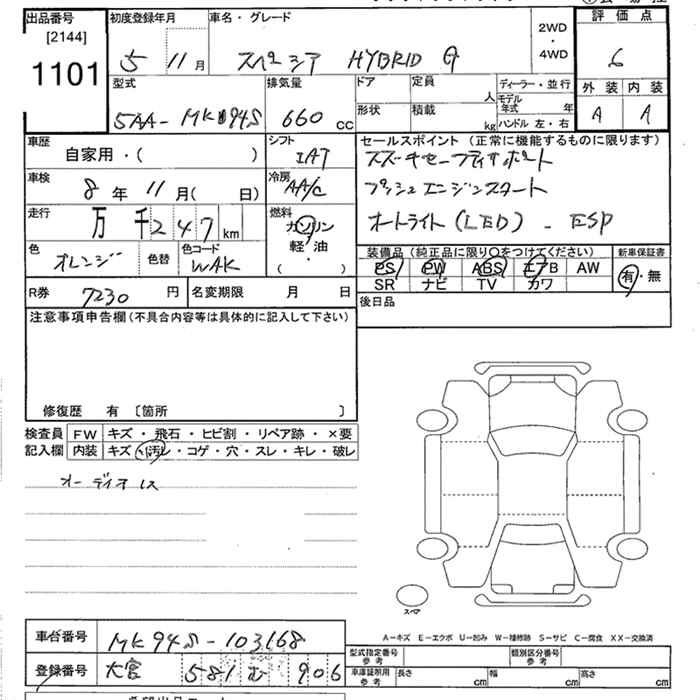 出品番号 初度登録年月 車名・グレード 2WD・4WD 評価点
[2144]
1101 5 11月 スペーシア HYBRID G 6
型式 排気量 ドア 定員 人 ディーラー・並行 外装 内装
5AA-MK94S 660cc 形状 積載 kg モデル年式 年 A A
ハンドル 左・右
車歴 シフト セールスポイント (正常に機能するものに限ります)
自家用・( ) IAT スズキセーフティサポート
車検 8年 11月( 日) 冷房 AA/C プッシュエンジンスタート
走行 万 千247km 燃料 ガソリン オートライト(LED) - ESP
軽油
( )
色 オレンジ 色替 色コード WAK
装備品(純正品に限り○をつけてください) 新車保証書
PS PW ABS エアB AW 有・無
SR ナビ TV カワ
R券 7230円 名変期限 月 日 後日品
注意事項申告欄(不具合内容等は具体的に記入して下さい)
修復歴 有 〔箇所 〕
検査員 FW キズ・飛石・ヒビ割・リペア跡・×要
記入欄 内装 キズ・汚レ・コゲ・穴・スレ・キレ・破レ
オーディオレス
スペア
A-キズ E-エクボ U-凹み W-補修跡 S-サビ C-腐食 XX-交換済
車台番号 MK94S-103168
型式指定番号 参考 類別区分番号 参考
登録番号 大宮 581 む 906
車庫証明用 参考 長さ cm 幅 cm 高さ cm